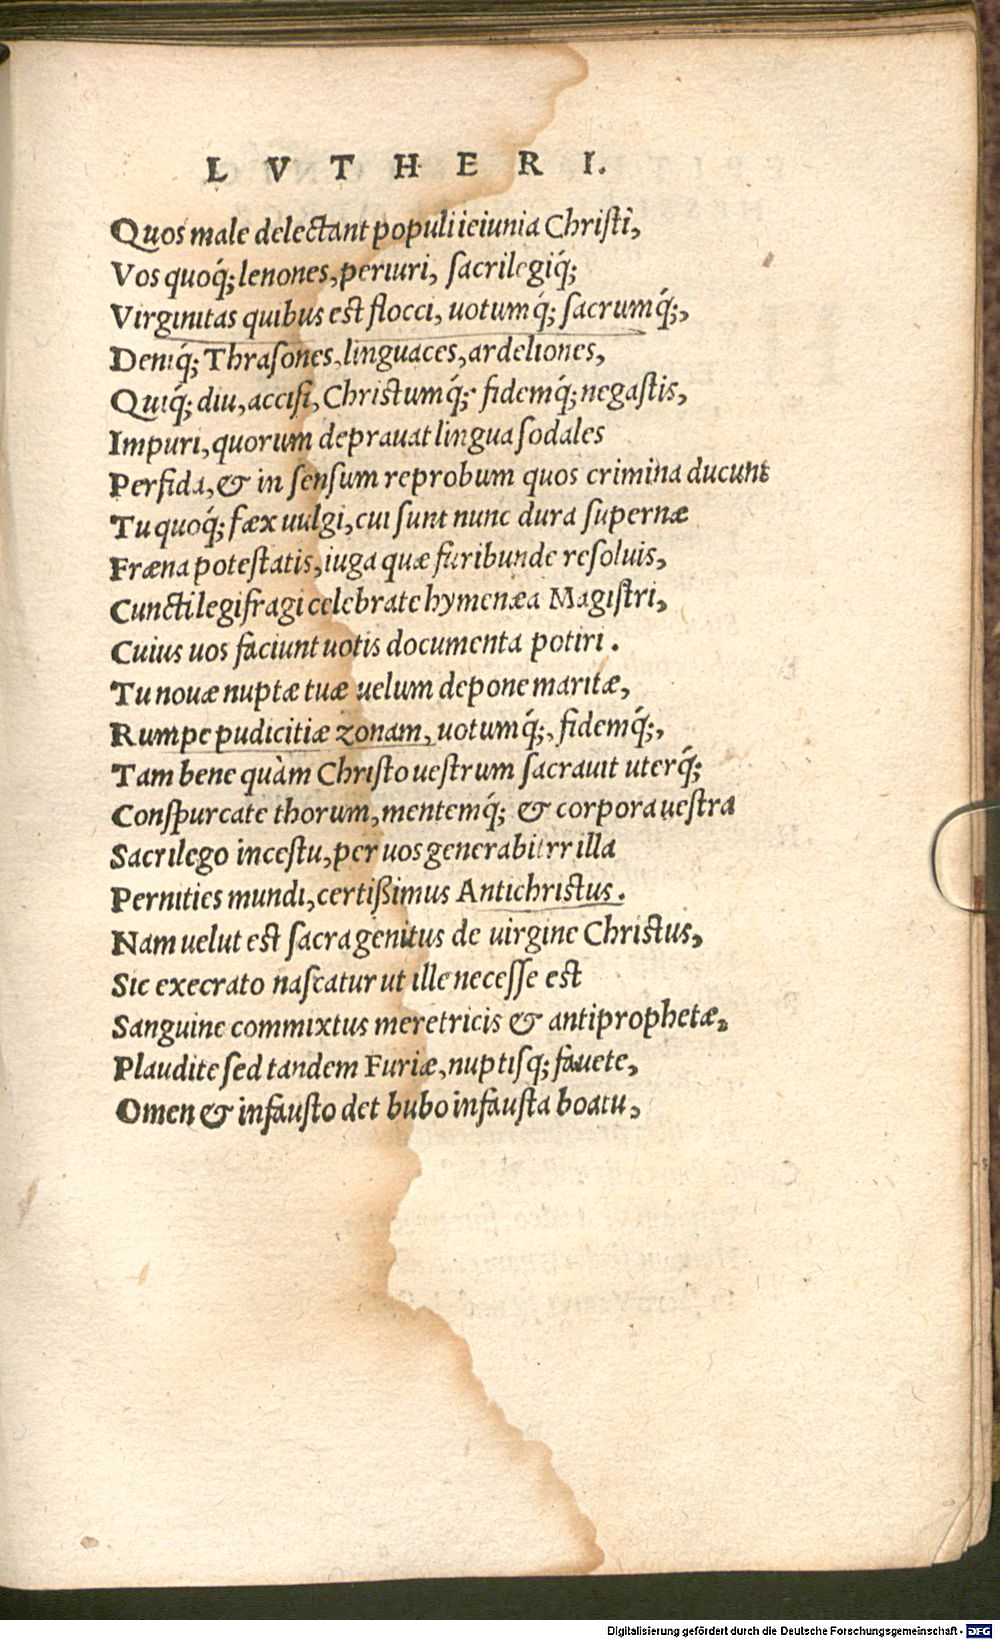 LVTHERI.
Quos male delectant populi ieiunia Christi,
Vos quoq́; lenones, periuri, sacrilegiq́;
Virginitas quibus est flocci, uotumq́; sacrumq́;,
Deniq́; Thrasones, linguaces, ardeliones,
Quiq́; diu, accisi, Christumq́; fidemq́; negastis,
Impuri, quorum deprauat lingua sodales
Perfida, & in sensum reprobum quos crimina ducunt
Tu quoq́; fæx uulgi, cui sunt nunc dura supernæ
Fræna potestatis, iuga quæ furibunde resoluis,
Cuncti legifragi celebrate hymenæa Magistri,
Cuius uos faciunt uotis documenta potiri.
Tu nouæ nuptæ tuæ uelum depone maritæ,
Rumpe pudicitiæ zonam, uotumq́;, fidemq́;,
Tam bene quàm Christo uestrum sacrauit uterq́;
Conspurcate thorum, mentemq́; & corpora uestra
Sacrilego incestu, per uos generabitrr illa
Pernities mundi, certißimus Antichristus.
Nam uelut est sacra genitus de uirgine Christus,
Sic execrato nascatur ut ille necesse est
Sanguine commixtus meretricis & antiprophetæ,
Plaudite sed tandem Furiæ, nuptisq; fauete,
Omen & infausto det bubo infausta boatu,
Digitalisierung gefördert durch die Deutsche Forschungsgemeinschaft - DFG